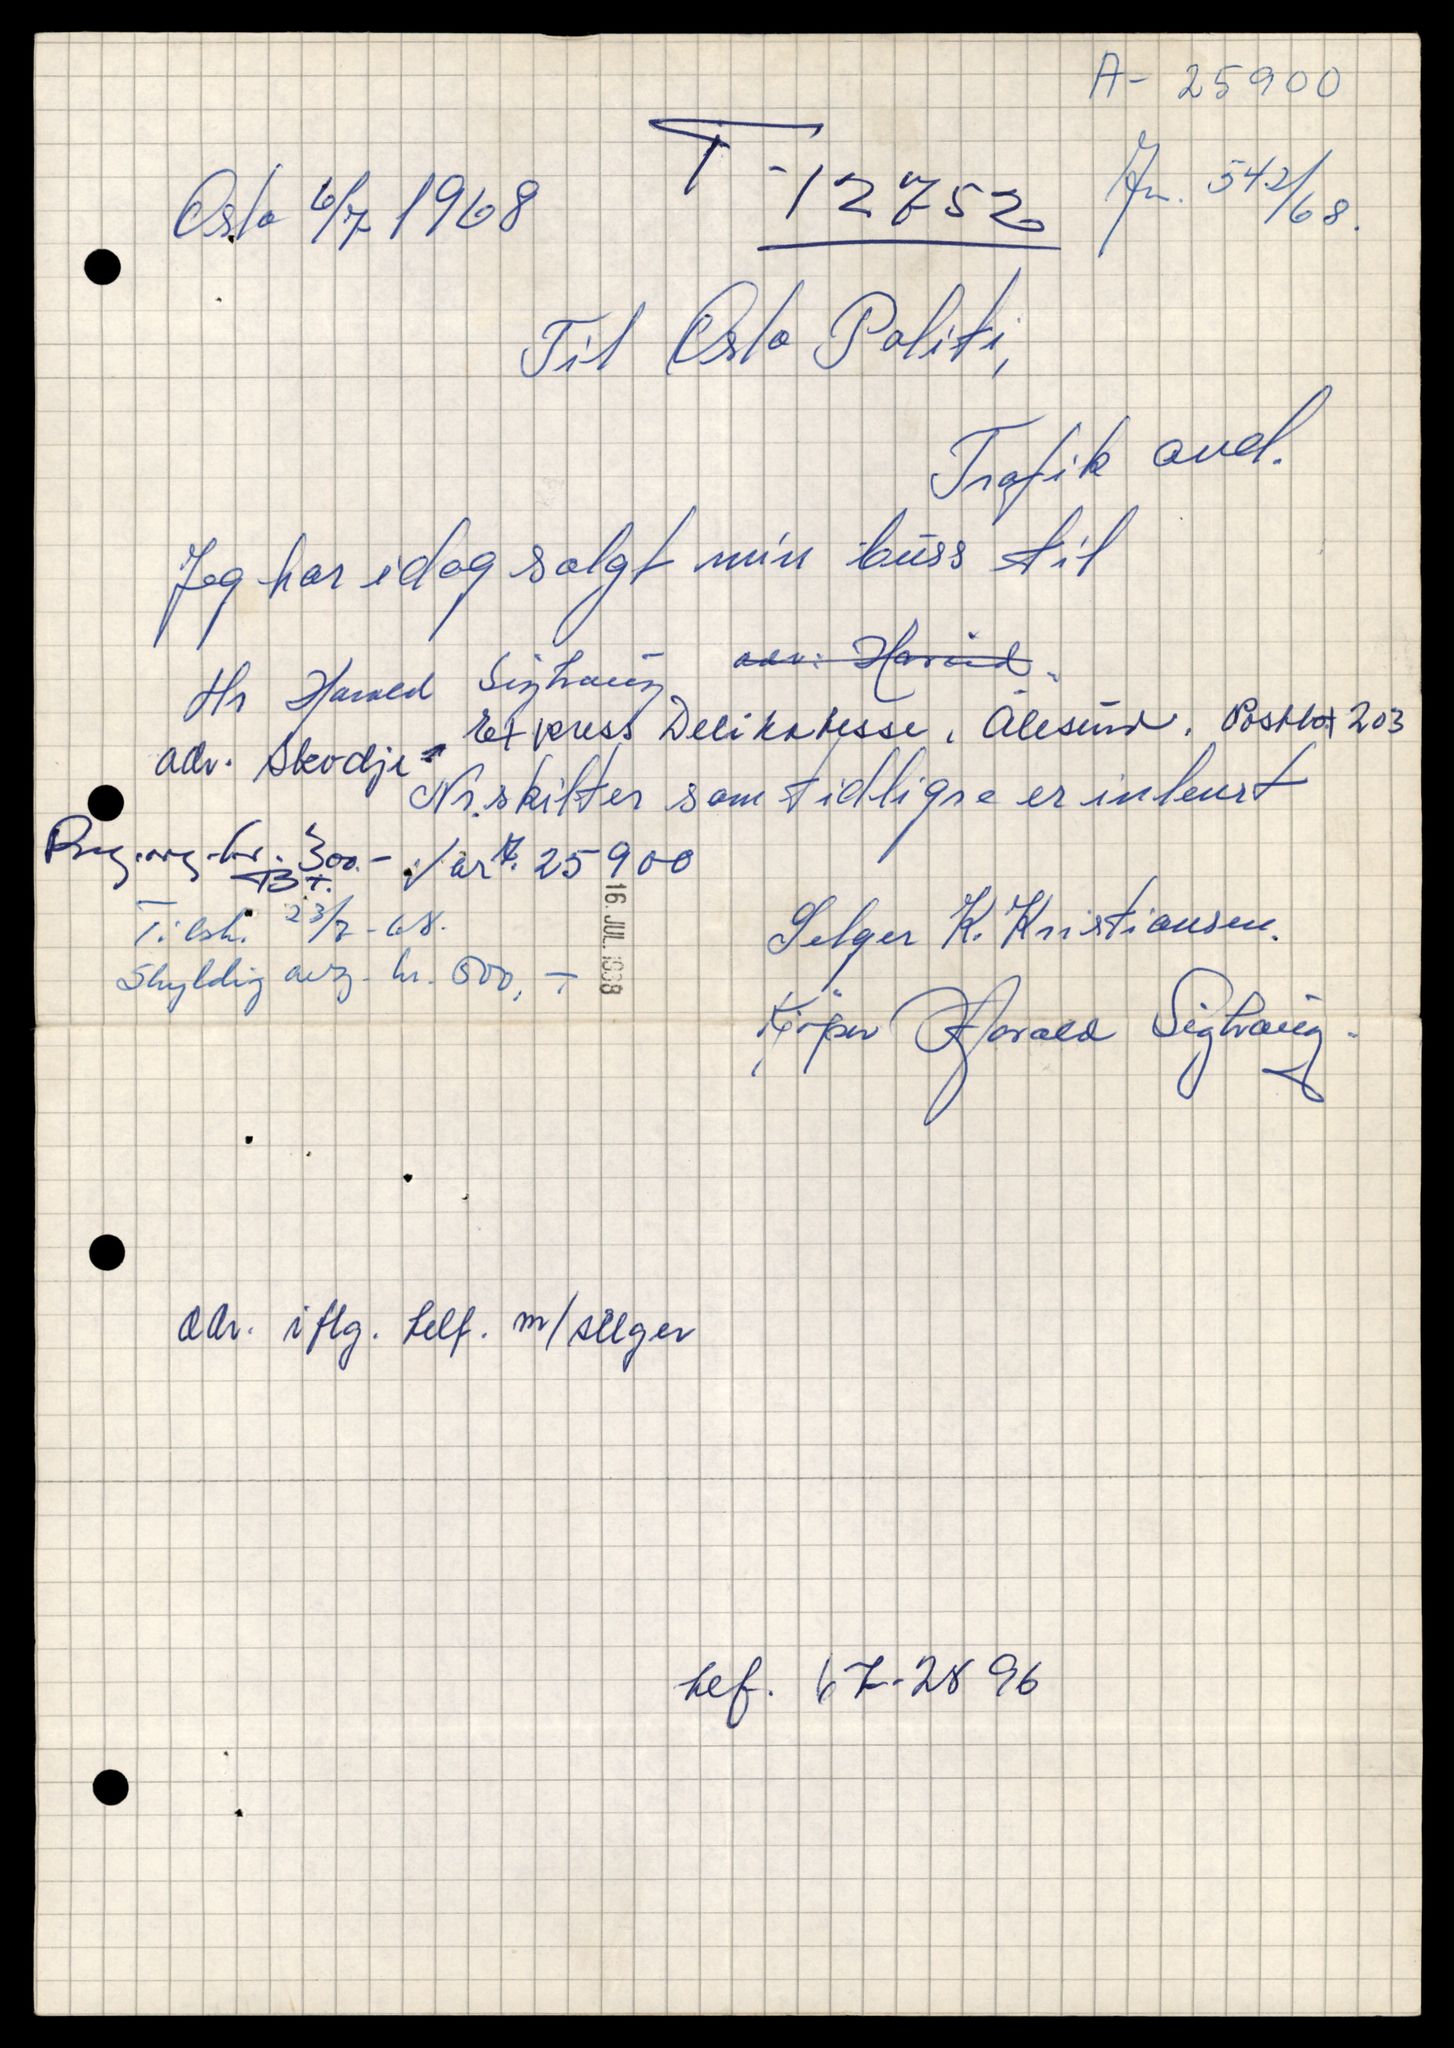 A- 25900
T-12752
Jn. 542/68.
Oslo 6/7 1968
Til Oslo Politi,
Trafik avd.
Jeg har idag solgt min buss til
Hr Harald Sighaug adr: Hareid.
adr. Skodje Express Delikatesse, Ålesund. Postbox 203
Nr.skilter som tidligre er inlevrt
Reg.avg. kr. 300.- var A. 25900
Bt.
Tilsk. 23/7-68.
16. JUL. 1968
Selger K. Kristiansen.
Skyldig avg. kr. 500,-
Kjöper Harald Sighaug.
adr. iflg. telf. m/selger
tlf. 67-2896